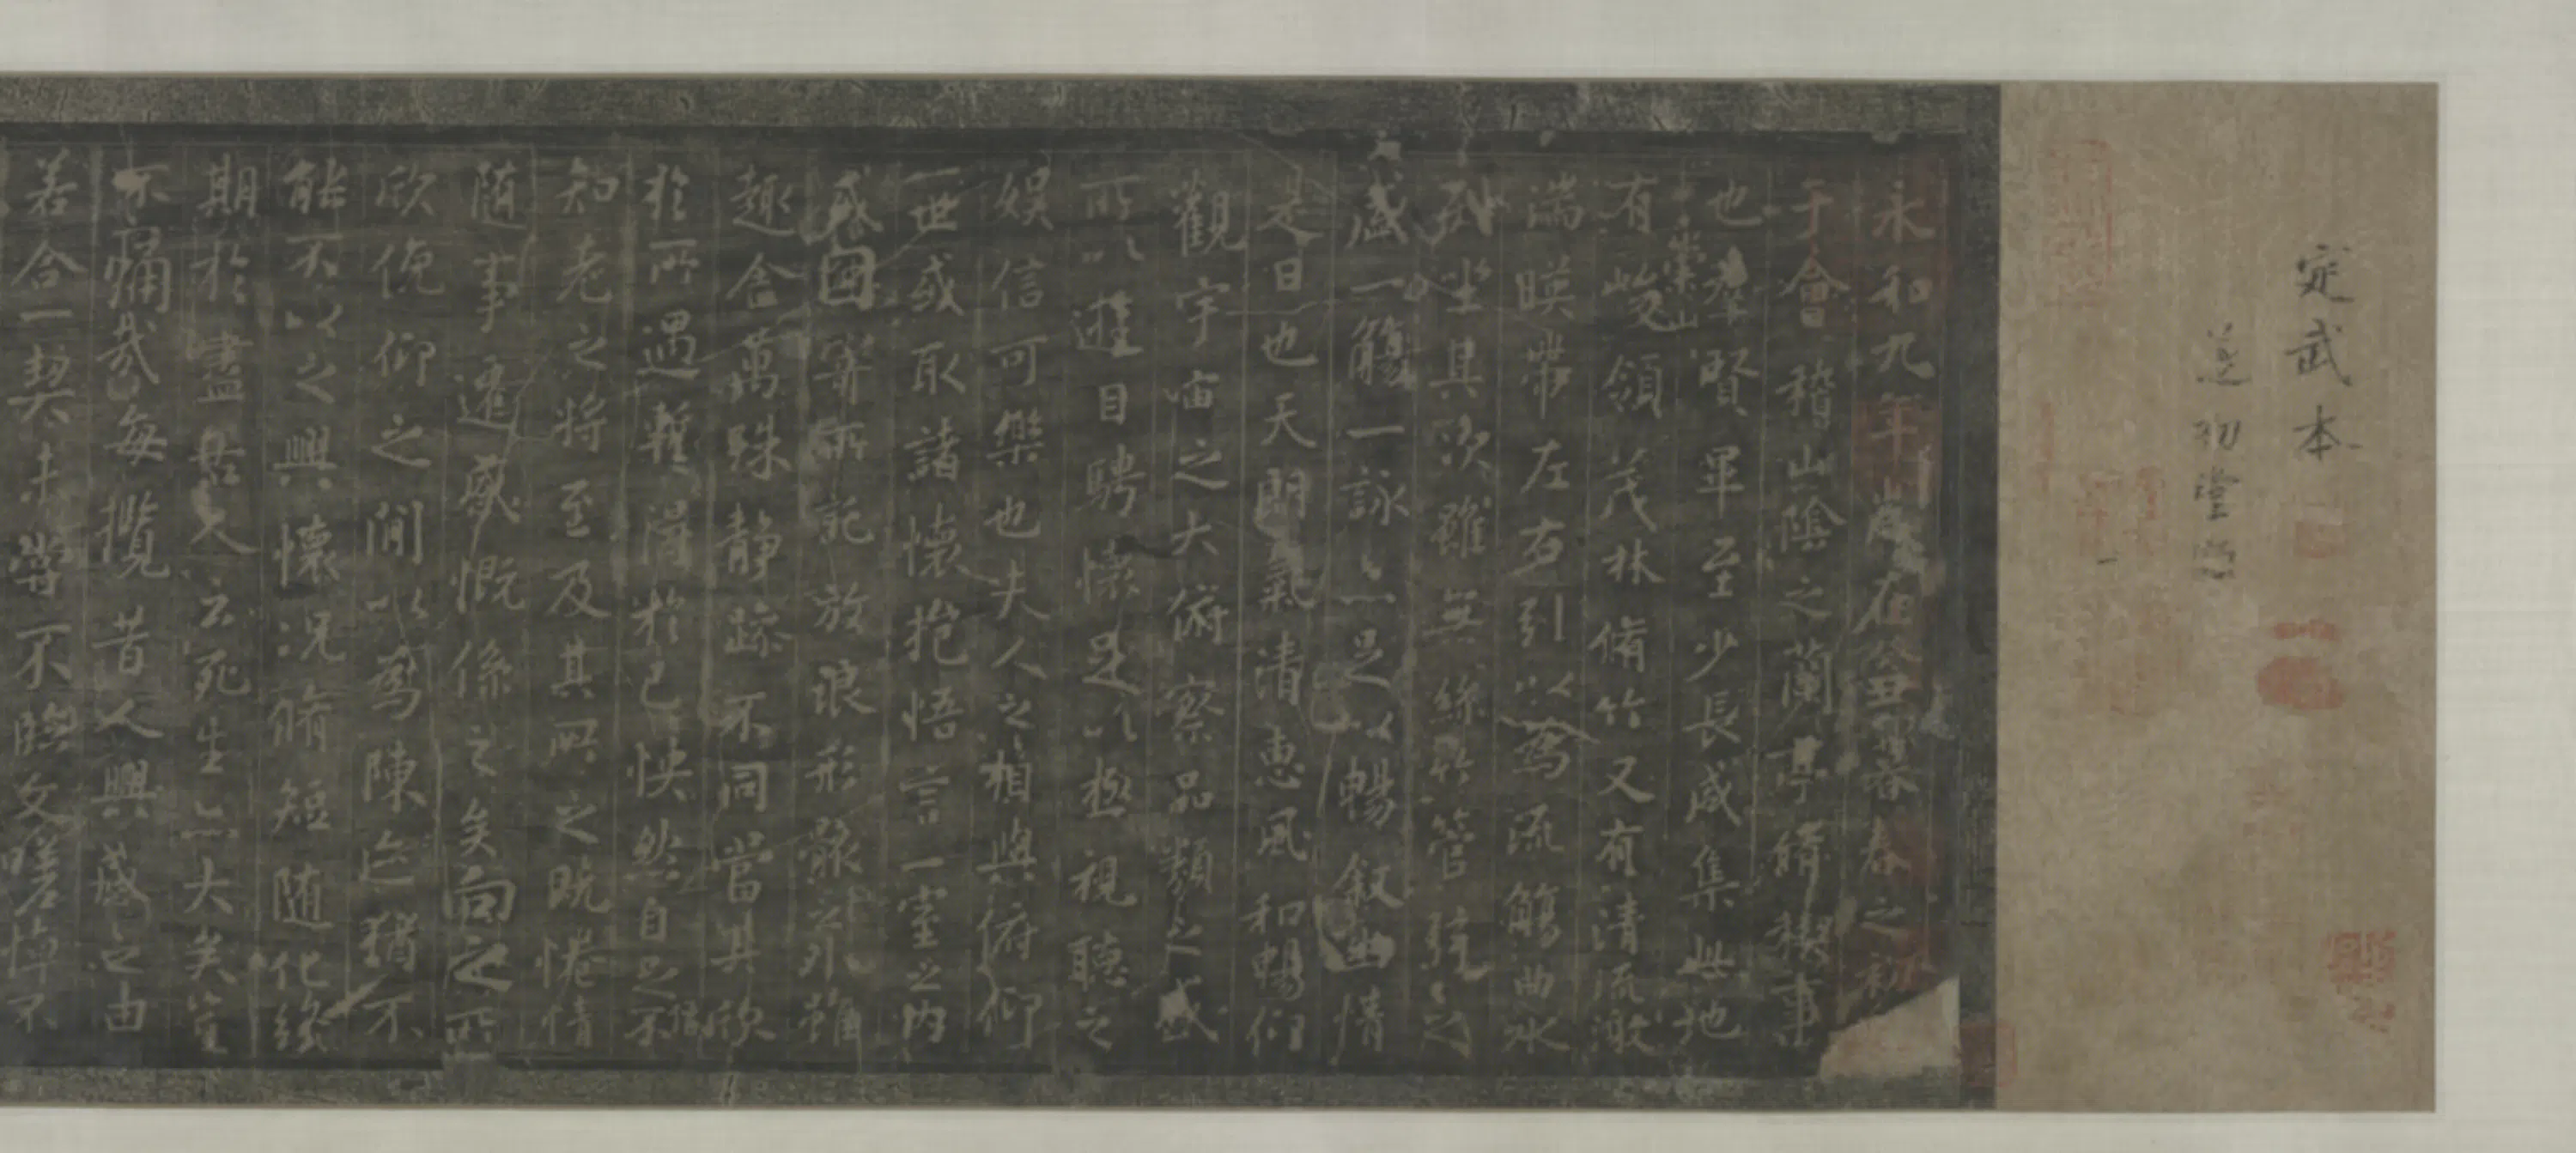 定武本
遂初堂
永和九年歲在癸丑暮春之初會
于會稽山陰之蘭亭脩稧事
也羣賢畢至少長咸集此地
有崇山峻領茂林脩竹又有清流激
湍暎帶左右引以為流觴曲水
列坐其次雖無絲竹管弦之
盛一觴一詠亦足以暢敘幽情
是日也天朗氣清惠風和暢仰
觀宇宙之大俯察品類之盛
所以遊目騁懷足以極視聽之
娛信可樂也夫人之相與俯仰
一世或取諸懷抱悟言一室之內
或因寄所託放浪形骸之外雖
趣舍萬殊静躁不同當其欣
於所遇蹔得於己怏然自足不
知老之將至及其所之既惓情
随事遷感慨係之矣向之所
欣俛仰之間以為陳迹猶不
能不以之興懷況脩短随化終
期於盡古人云死生亦大矣豈
不痛哉每攬昔人興感之由
若合一契未甞不臨文嗟悼不